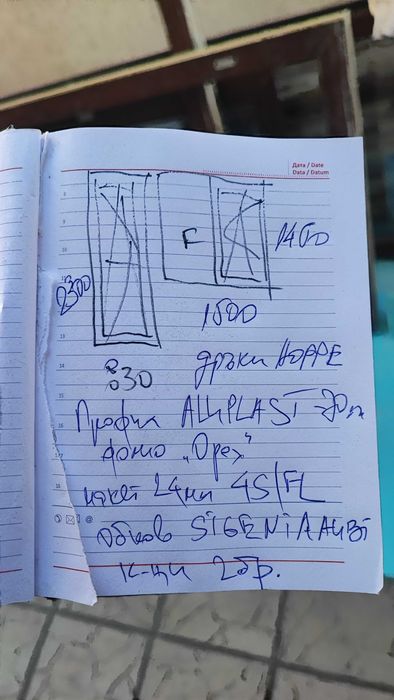 Дата / Date
Data / Datum
F
1400
2300
1500
830
дръжки HOPPE
Профил ALUPLAST 70мм
фолио „Орех"
пакет 24мм 4S/FL
Обков SIEGENIA AUBI
к-ции 2бр.